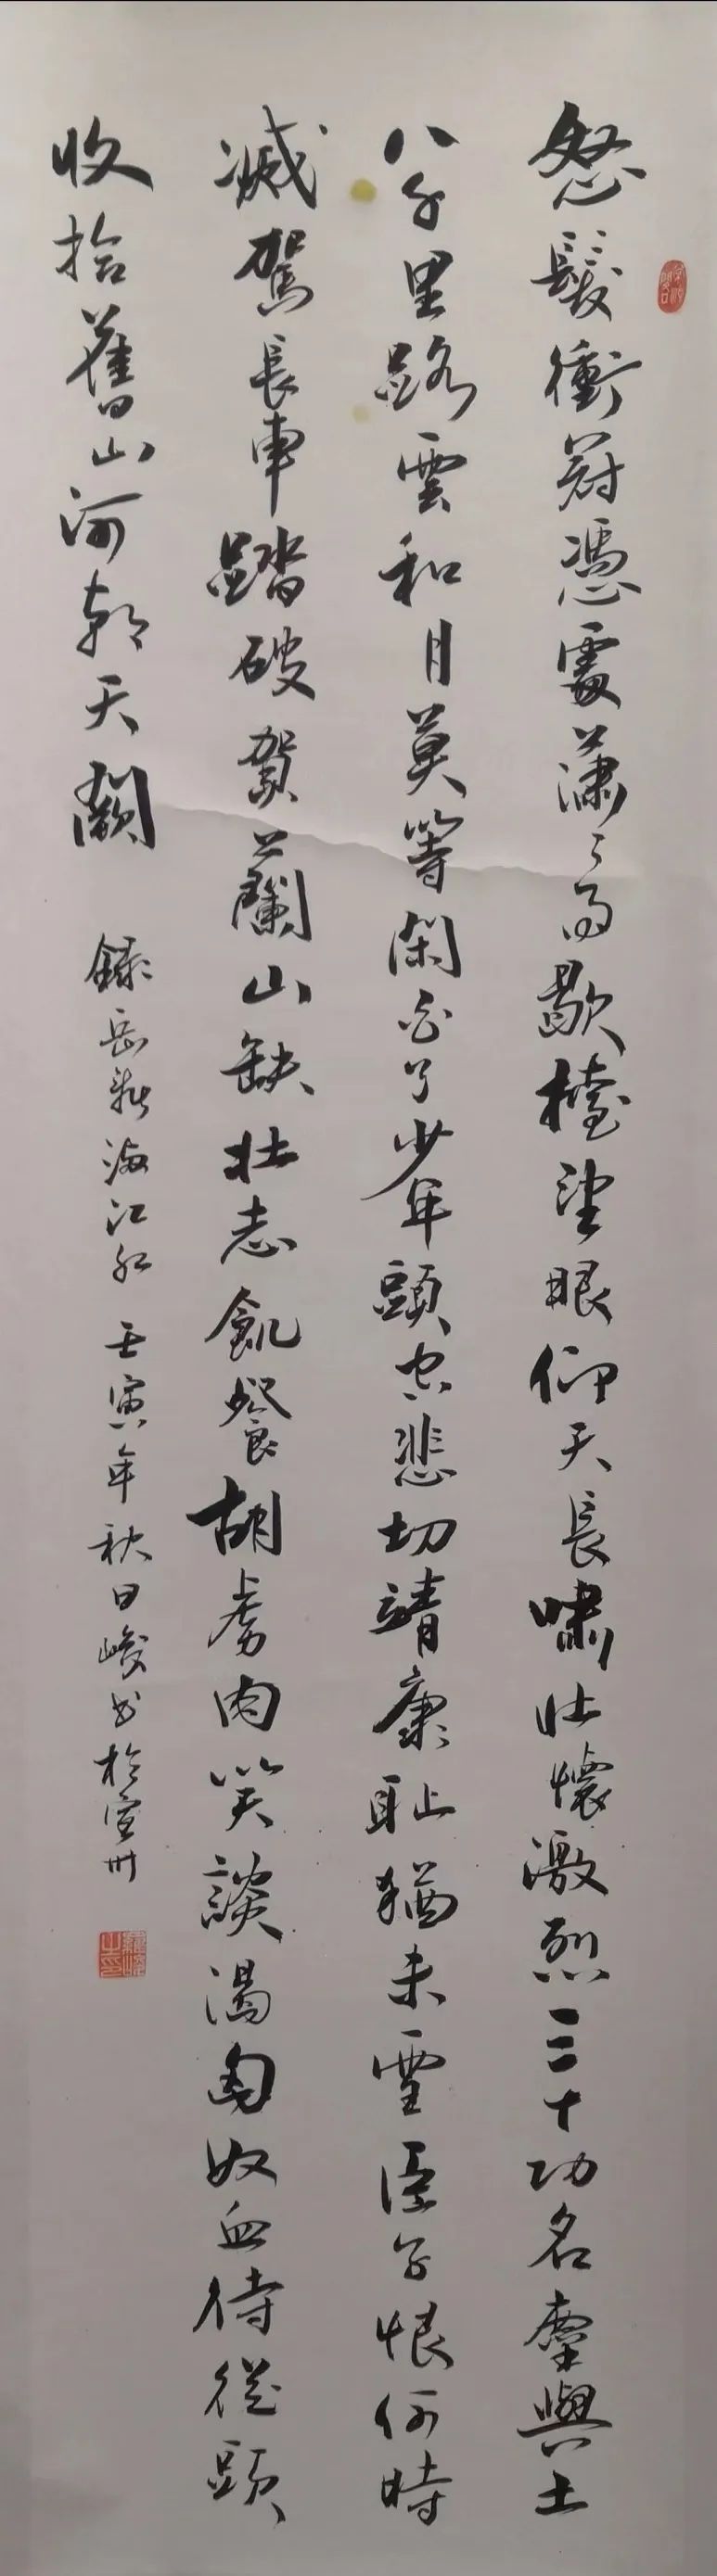 怒髮衝冠憑處瀟〻雨歇擡望眼仰天長嘯壯懷激烈三十功名塵與土
八千里路雲和月莫等閑白了少年頭空悲切靖康恥猶未雪臣子恨何時
滅駕長車踏破賀蘭山缺壯志飢餐胡虜肉笑談渴匈奴血待從頭
收拾舊山河朝天闕
錄岳飛滿江紅 壬寅年秋日峻書於宣州